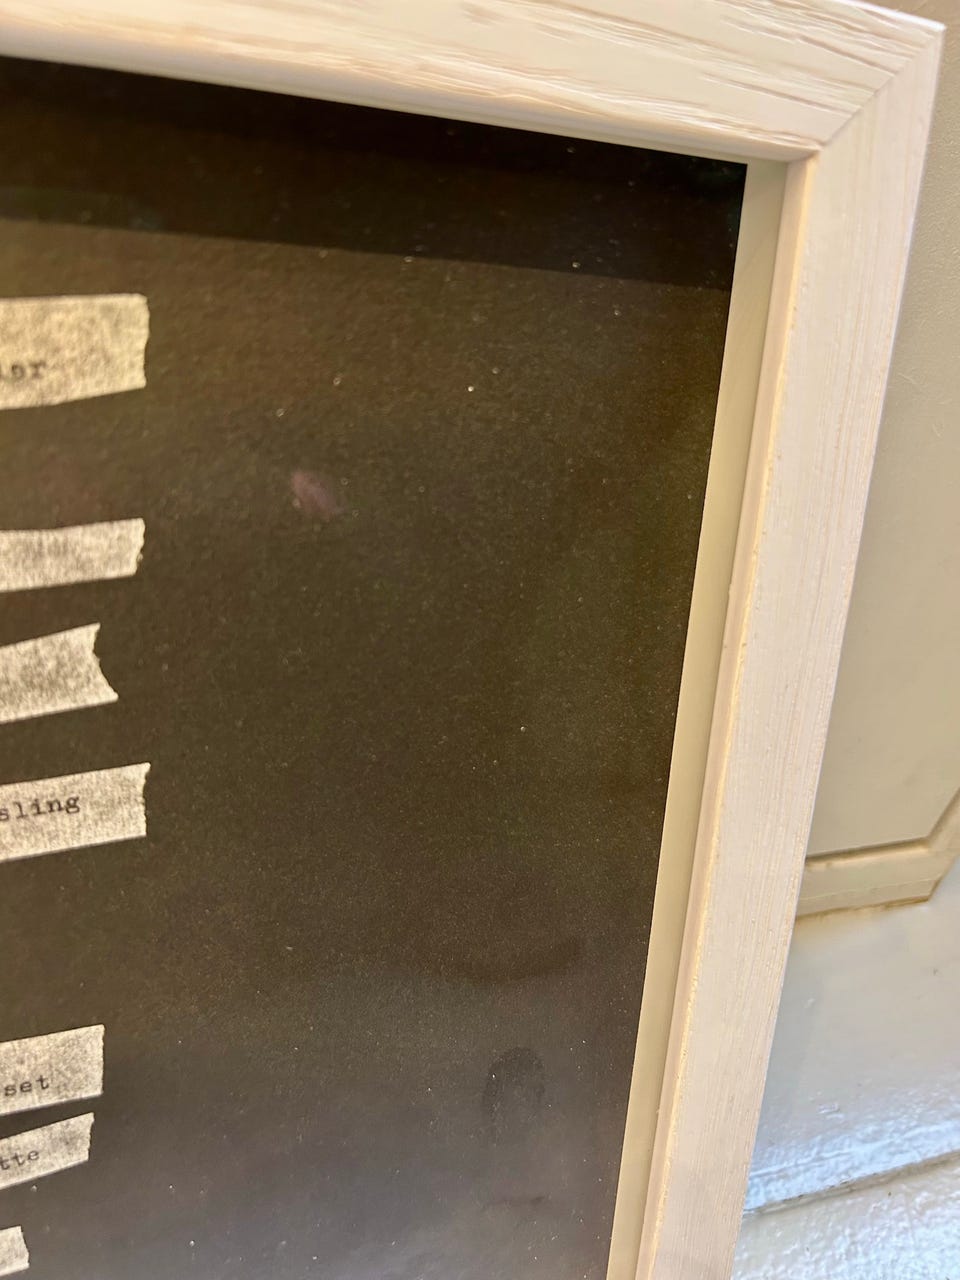 sling
set
tte